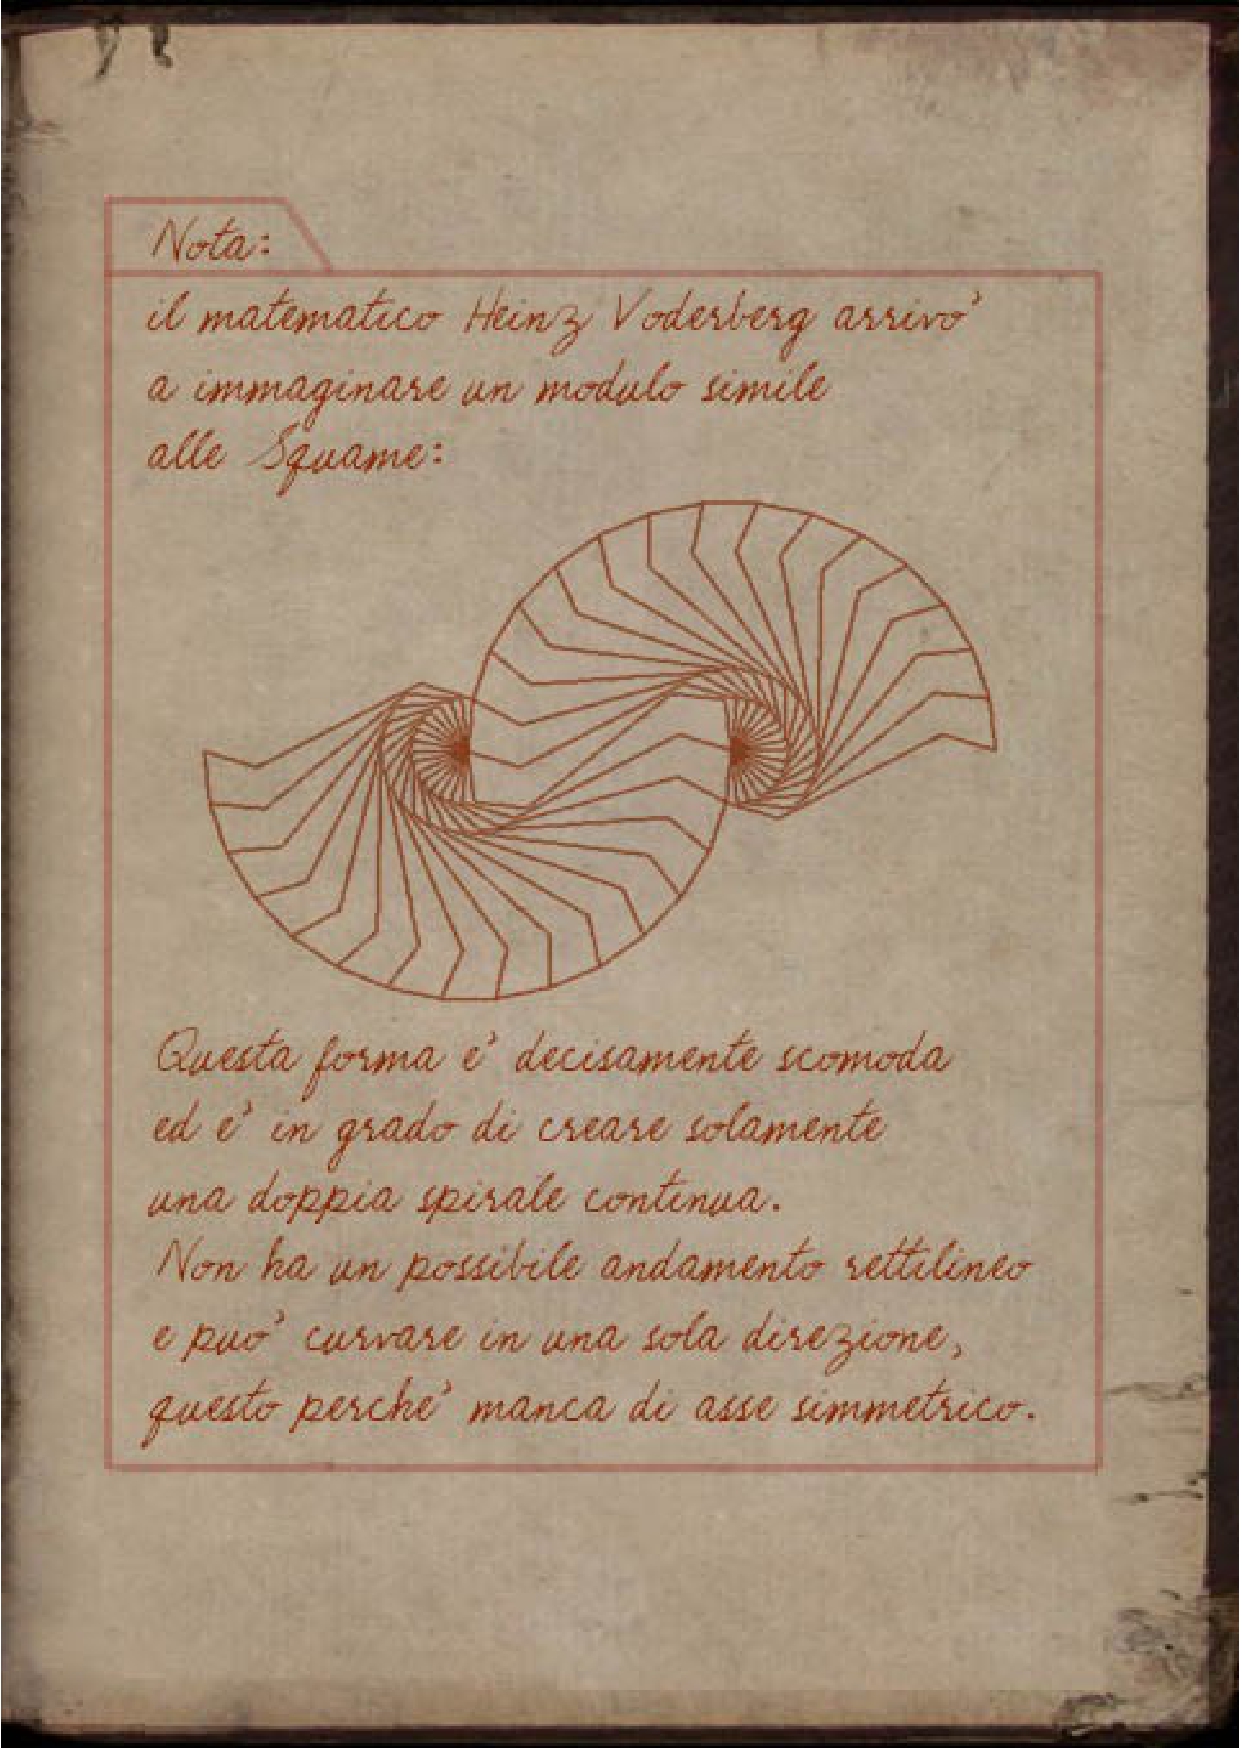 Nota:
il matematico Heinz Voderberg arrivo'
a immaginare un modulo simile
alle Squame:
Questa forma e' decisamente scomoda
ed e' in grado di creare solamente
una doppia spirale continua.
Non ha un possibile andamento rettilineo
e puo' curvare in una sola direzione,
questo perche' manca di asse simmetrico.